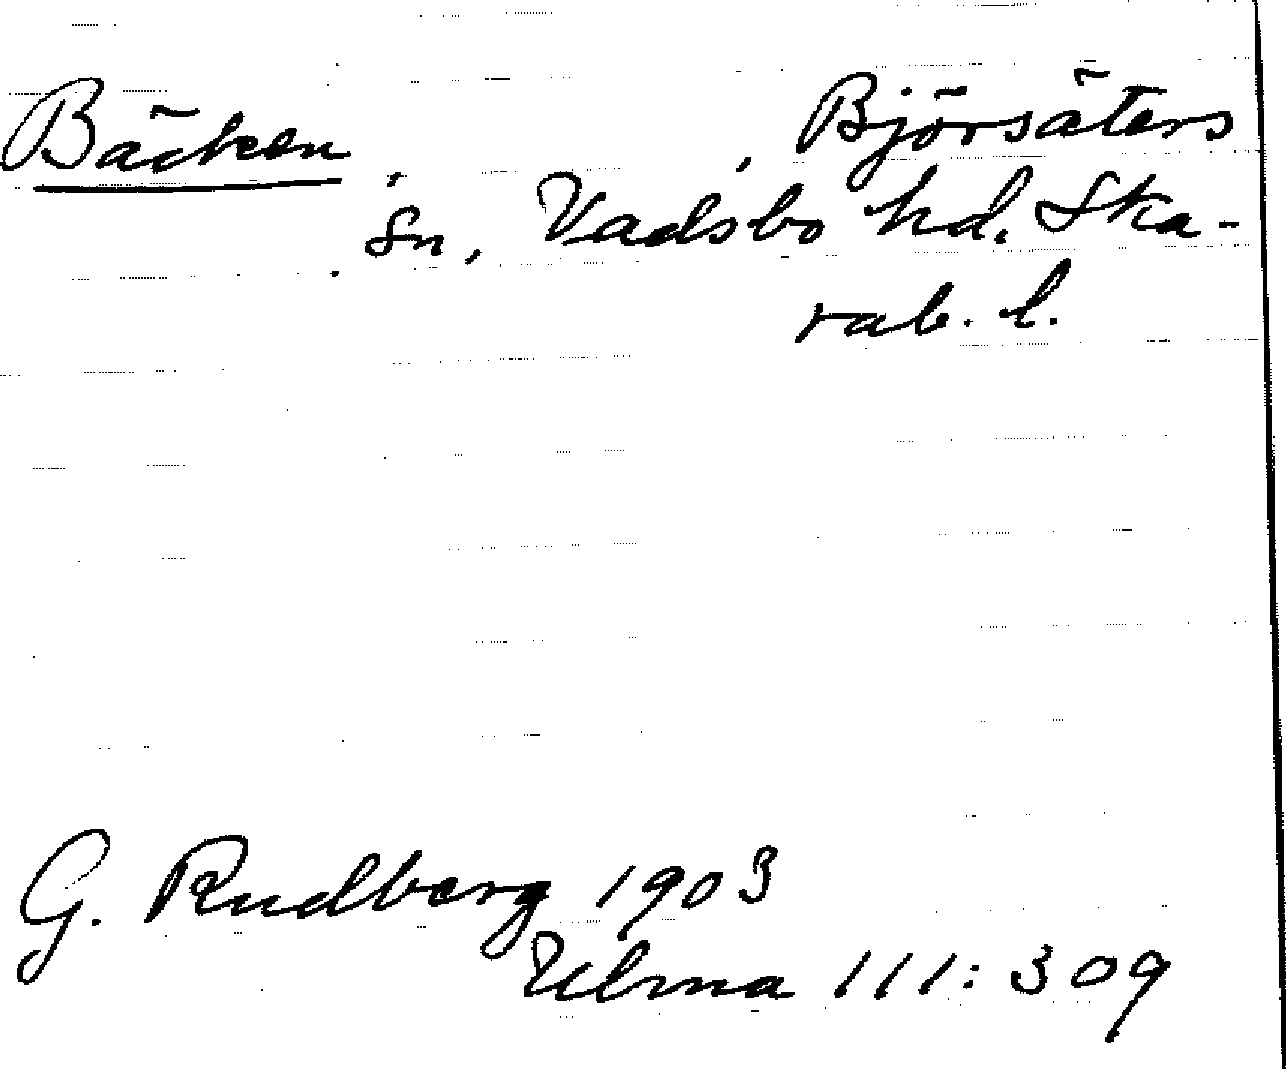 Bäcken, , Björsäters
sn, Vadsbo hd. Ska-
rab. l.
G. Rudberg 1903
Ulma 111:309